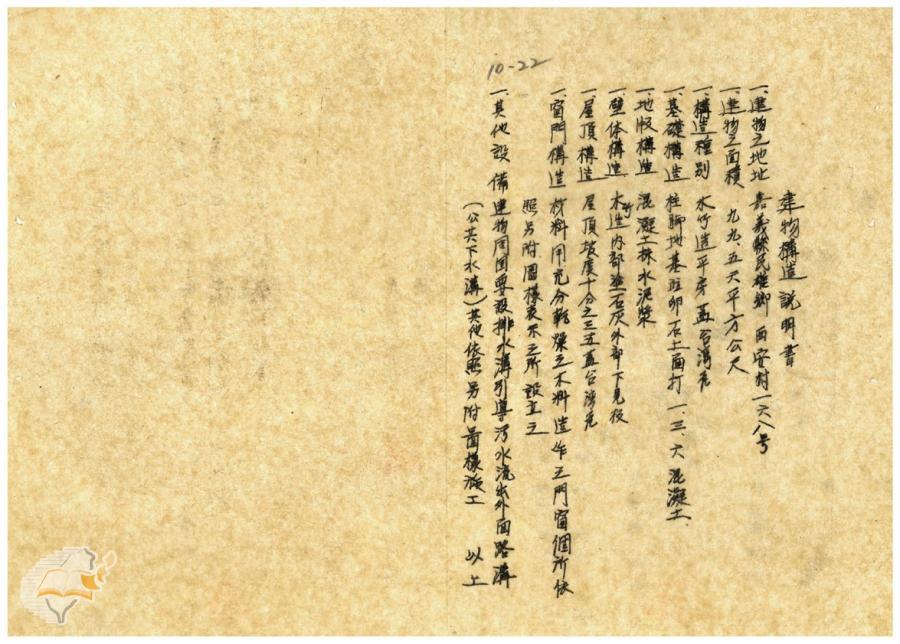 10-22
建物構造說明書
一、建物之地址 嘉義縣民雄鄉西安村一六八号
一、建物之面積 九九、五尺平方公尺
一、構造種別 木竹造平房蓋台湾瓦
一、基礎構造 柱脚地基班卵石上面打一、三、六混凝土
一、地板構造 混凝土抹水泥漿
一、壁体構造 木竹造內部塗石灰外部下見板
一、屋頂構造 屋頂坡度十分之三五蓋台湾瓦
一、窗門構造 材料用充分乾燥之木料造作之門窗個所依
照另附圖樣表示之所設立之
一、其他設備 建物周圍要設排水溝引導污水流出外面路溝
(公共下水溝)其他依照另附圖樣施工 以上